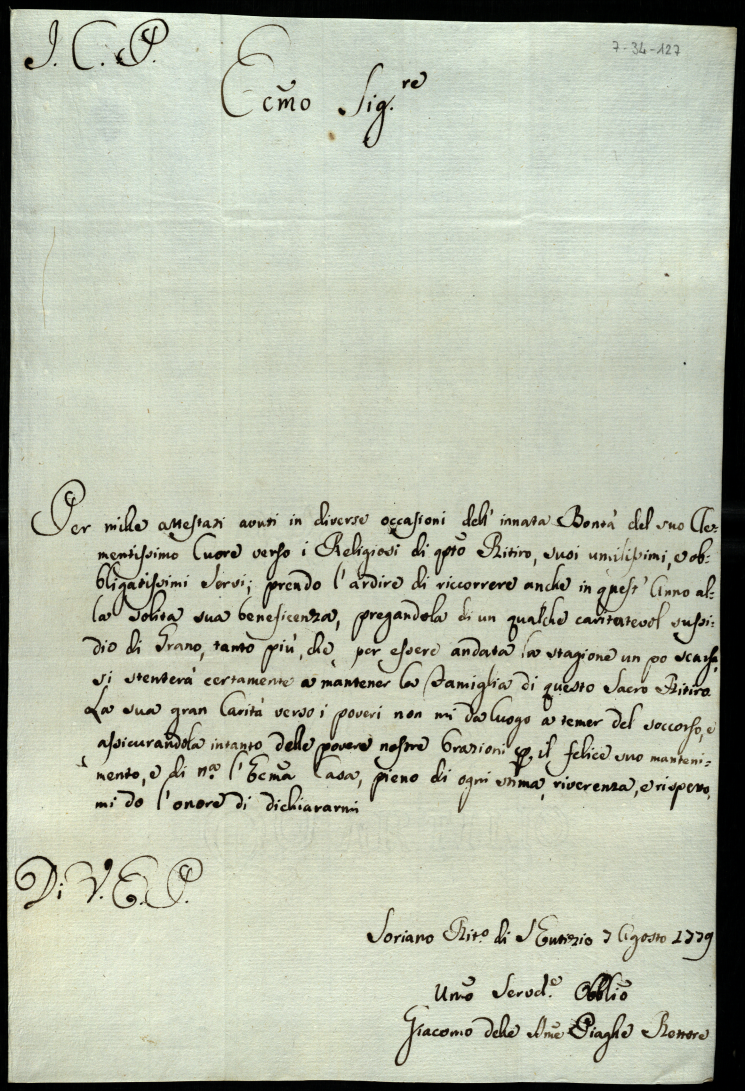 J. C. P.
7-34-127
Ecmo Sig.re
Per mille attestati avuti in diverse occasioni dell' innata Bontà del suo Cle-
mentissimo Cuore verso i Religiosi di qpto Ritiro, suoi umilissimi, e ob-
bligatissimi Servi; prendo l'ardire di ricorrere anche in quest' Anno al-
la solita sua beneficenza, pregandola di un qualche caritatevol sussi-
dio di Grano, tanto più, che per essere andata la stagione un po scarsa,
si stenterà certamente a mantener la Famiglia di questo Sacro Ritiro.
La sua gran Carità verso i poveri non mi da luogo a temer del soccorso, e
assicurandola intanto delle povere nostre Orazioni p. il felice suo manteni-
mento, e di n.a l'Ecma Casa, pieno di ogni stima, riverenza, e rispetto,
mi do l'onore di dichiararmi
Di V. E. P.
Soriano Rit.o di S Eutizio 7 Agosto 1779
Umo Servd.e Obblmo
Giacomo delle Sme Piaghe Rettore